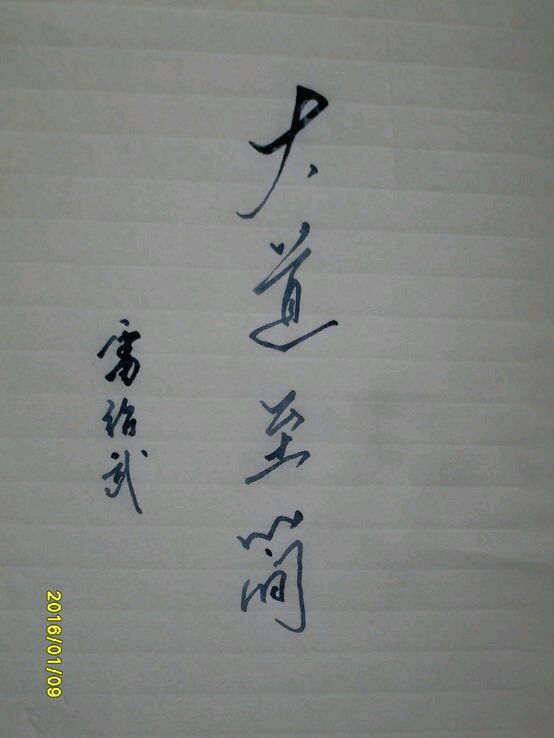 大道至简
雷绍武
2016/01/09